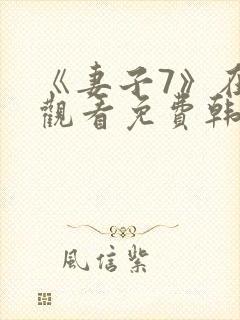 《妻子7》在
觀看免費韓
風信紫